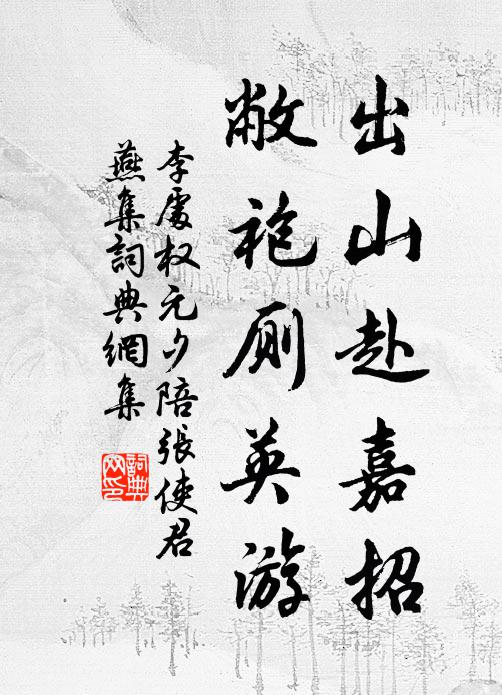 出山赴嘉招
敝袍厠英游
李處权元夕陪張使君
燕集詞典網集
詞典网印